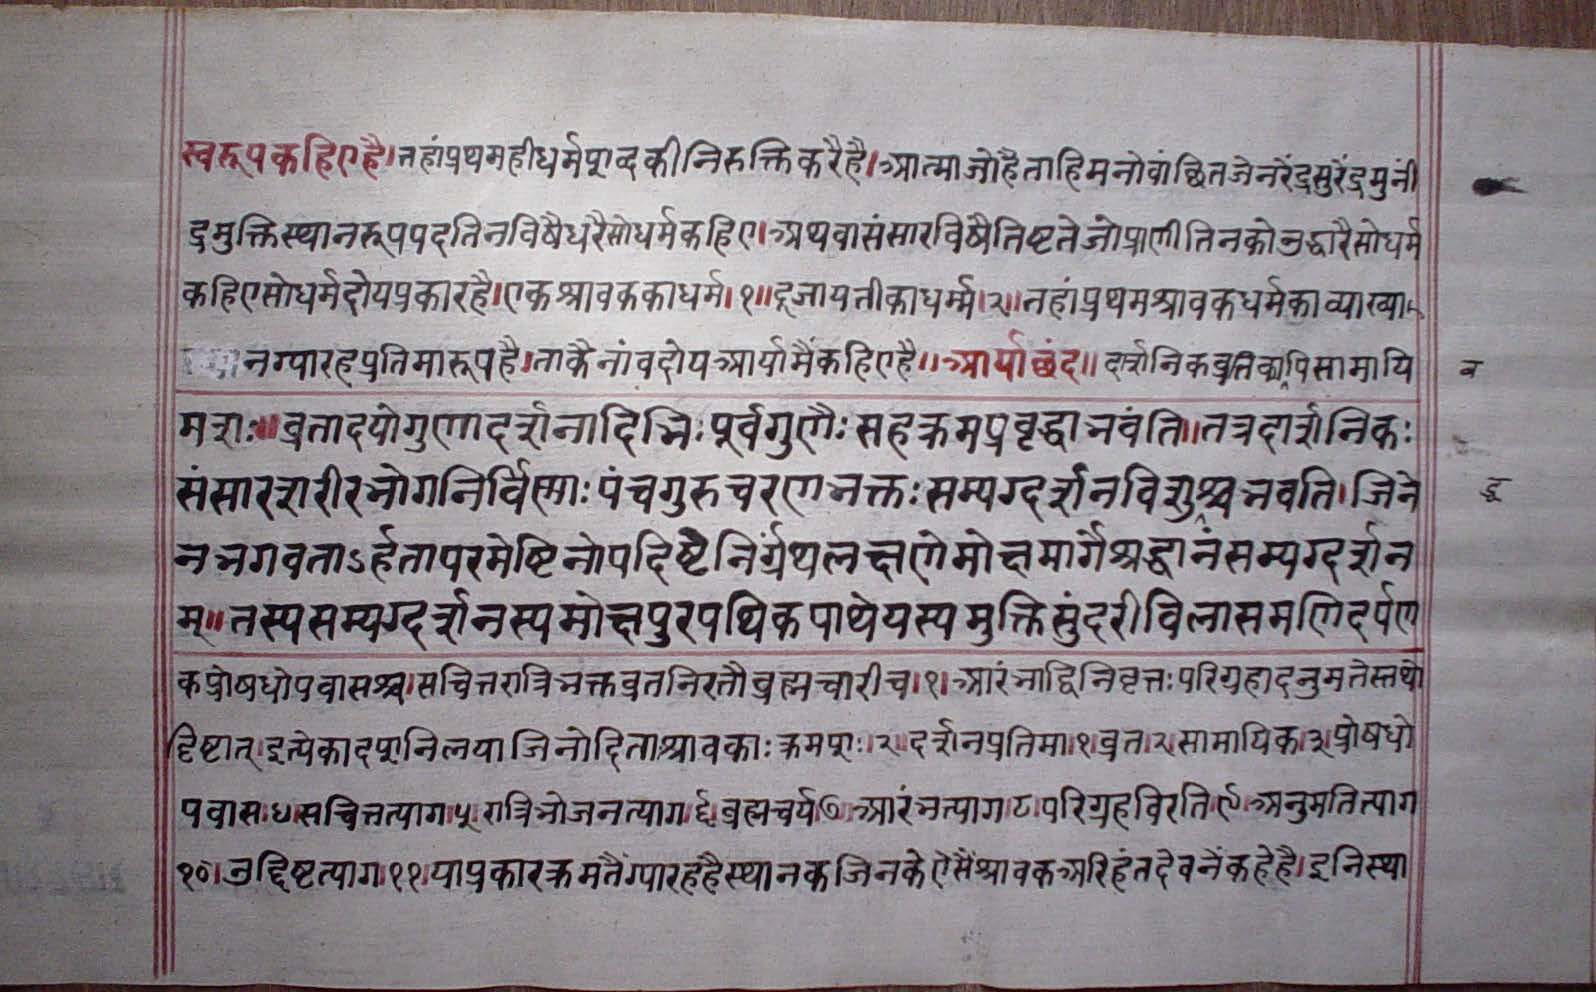 स्वरूप कहिए है। तहां प्रथम ही धर्म शब्द की निरुक्ति करै है। आत्मा जो है ताहि मनोवांछित जे नरेंद्र सुरेंद्र मुनीं
द्र मुक्तिस्थानरूप पद तिन विषै धरै सो धर्म कहिए। अथवा संसार विषै तिष्टते जो प्राणी तिनको उद्धारै सो धर्म
कहिए सो धर्म दोय प्रकार है। एक श्रावक का धर्म। १॥ दूजा यती का धर्म्म। २। तहां प्रथम श्रावक धर्म का व्याख्या
न ग्यारह प्रतिमारूप है। ताकै नांव दोय आर्या मैं कहिए है॥ आर्या छंद॥ दार्शनिकव्रतिकावपि सामायि
व
मशः॥ व्रतादयो गुणा दर्शनादिभिः पूर्वगुणैः सह क्रमप्रवृद्धा भवंति॥ तत्र दार्शनिकः
संसारशरीरभोगनिर्विण्णः पंचगुरुचरणभक्तः सम्यग्दर्शनविशुश्च भवति। जिने
द्ध
न भगवताऽर्हता परमेष्टिनोपदिष्टे निर्ग्रंथलक्षणे मोक्षमार्गे श्रद्धानं सम्यग्दर्शन
म्॥ तस्य सम्यग्दर्शनस्य मोक्षपुरपथिकपाथेयस्य मुक्तिसुंदरीविलासमणिदर्पण
कप्रोषधोपवासश्च। सचित्तरात्रिभक्तव्रतनिरतौ ब्रह्मचारी च। १। आरंभाद्विनिवृत्तः परिग्रहादनुमतेस्तथो
द्दिष्टात्। इत्येकादशनिलया जिनोदिताः श्रावकाः क्रमशः। २। दर्शनप्रतिमा। १। व्रत। २। सामायिक। ३। प्रोषधो
पवास। ४। सचित्तत्याग। ५। रात्रिभोजनत्याग। ६। ब्रह्मचर्य। ७। आरंभत्याग। ८। परिग्रहविरति। ९। अनुमतित्याग
१०। उद्दिष्टत्याग। ११। या प्रकार क्रमतैं ग्यारह है स्थानक जिनके ऐसैं श्रावक अरिहंतदेवनैं कहे है। इनि स्था